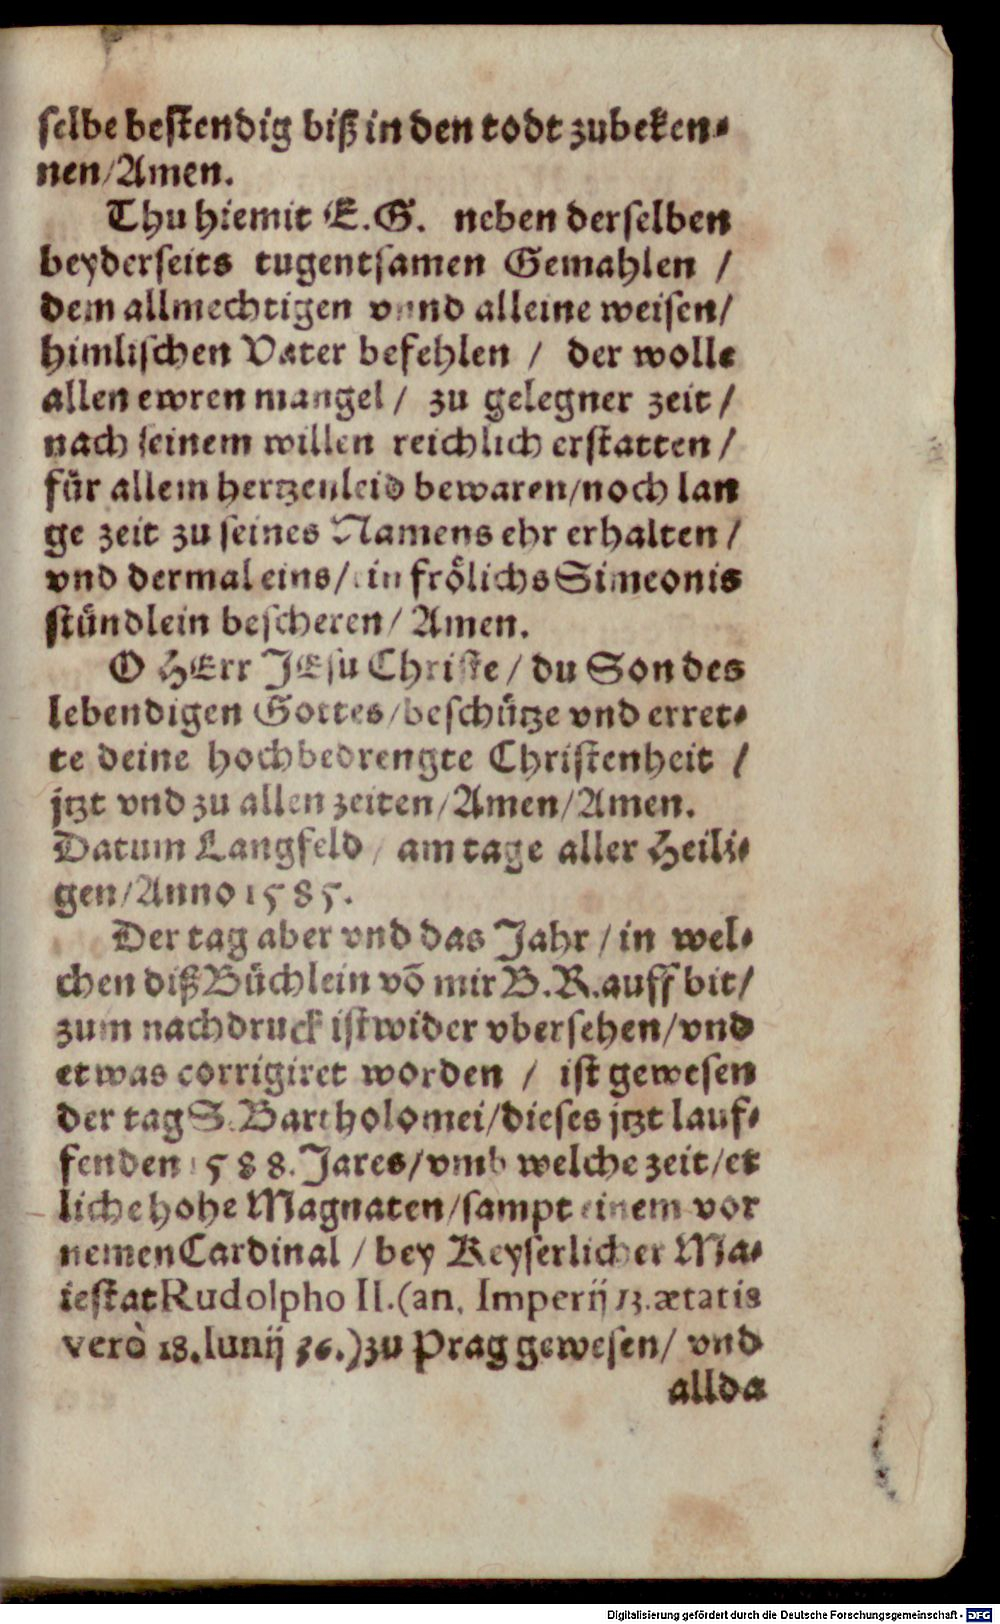 selbe bestendig biß in den todt zubeken⸗
nen/Amen.
Thu hiemit E.G. neben derselben
beyderseits tugentsamen Gemahlen /
dem allmechtigen vnnd alleine weisen/
himlischen Vater befehlen / der wolle
allen ewren mangel / zu gelegner zeit /
nach seinem willen reichlich erstatten /
für allem hertzenleid bewaren/noch lan
ge zeit zu seines Namens ehr erhalten /
vnd dermaleins/ ein frölichs Simeonis
stündlein bescheren/ Amen.
O HErr JEsu Christe / du Son des
lebendigen Gottes/beschütze vnd erret⸗
te deine hochbedrengte Christenheit /
jtzt vnd zu allen zeiten/Amen/Amen.
Datum Langfeld / am tage aller Heili⸗
gen/Anno 1585.
Der tag aber vnd das Jahr / in wel⸗
chen diß Büchlein võ mir B.R.auff bit/
zum nachdruck ist wider vbersehen/vnd
etwas corrigiret worden / ist gewesen
der tag S. Bartholomei/dieses jtzt lauf⸗
fenden 1588. Jares/vmb welche zeit/et
liche hohe Magnaten/sampt einem vor
nemen Cardinal / bey Keyserlicher Ma⸗
iestat Rudolpho II.(an. Imperij 13. ætatis
verò 18. Iunij 36.)zu Prag gewesen/ vnd
allda
Digitalisierung gefördert durch die Deutsche Forschungsgemeinschaft - DFG